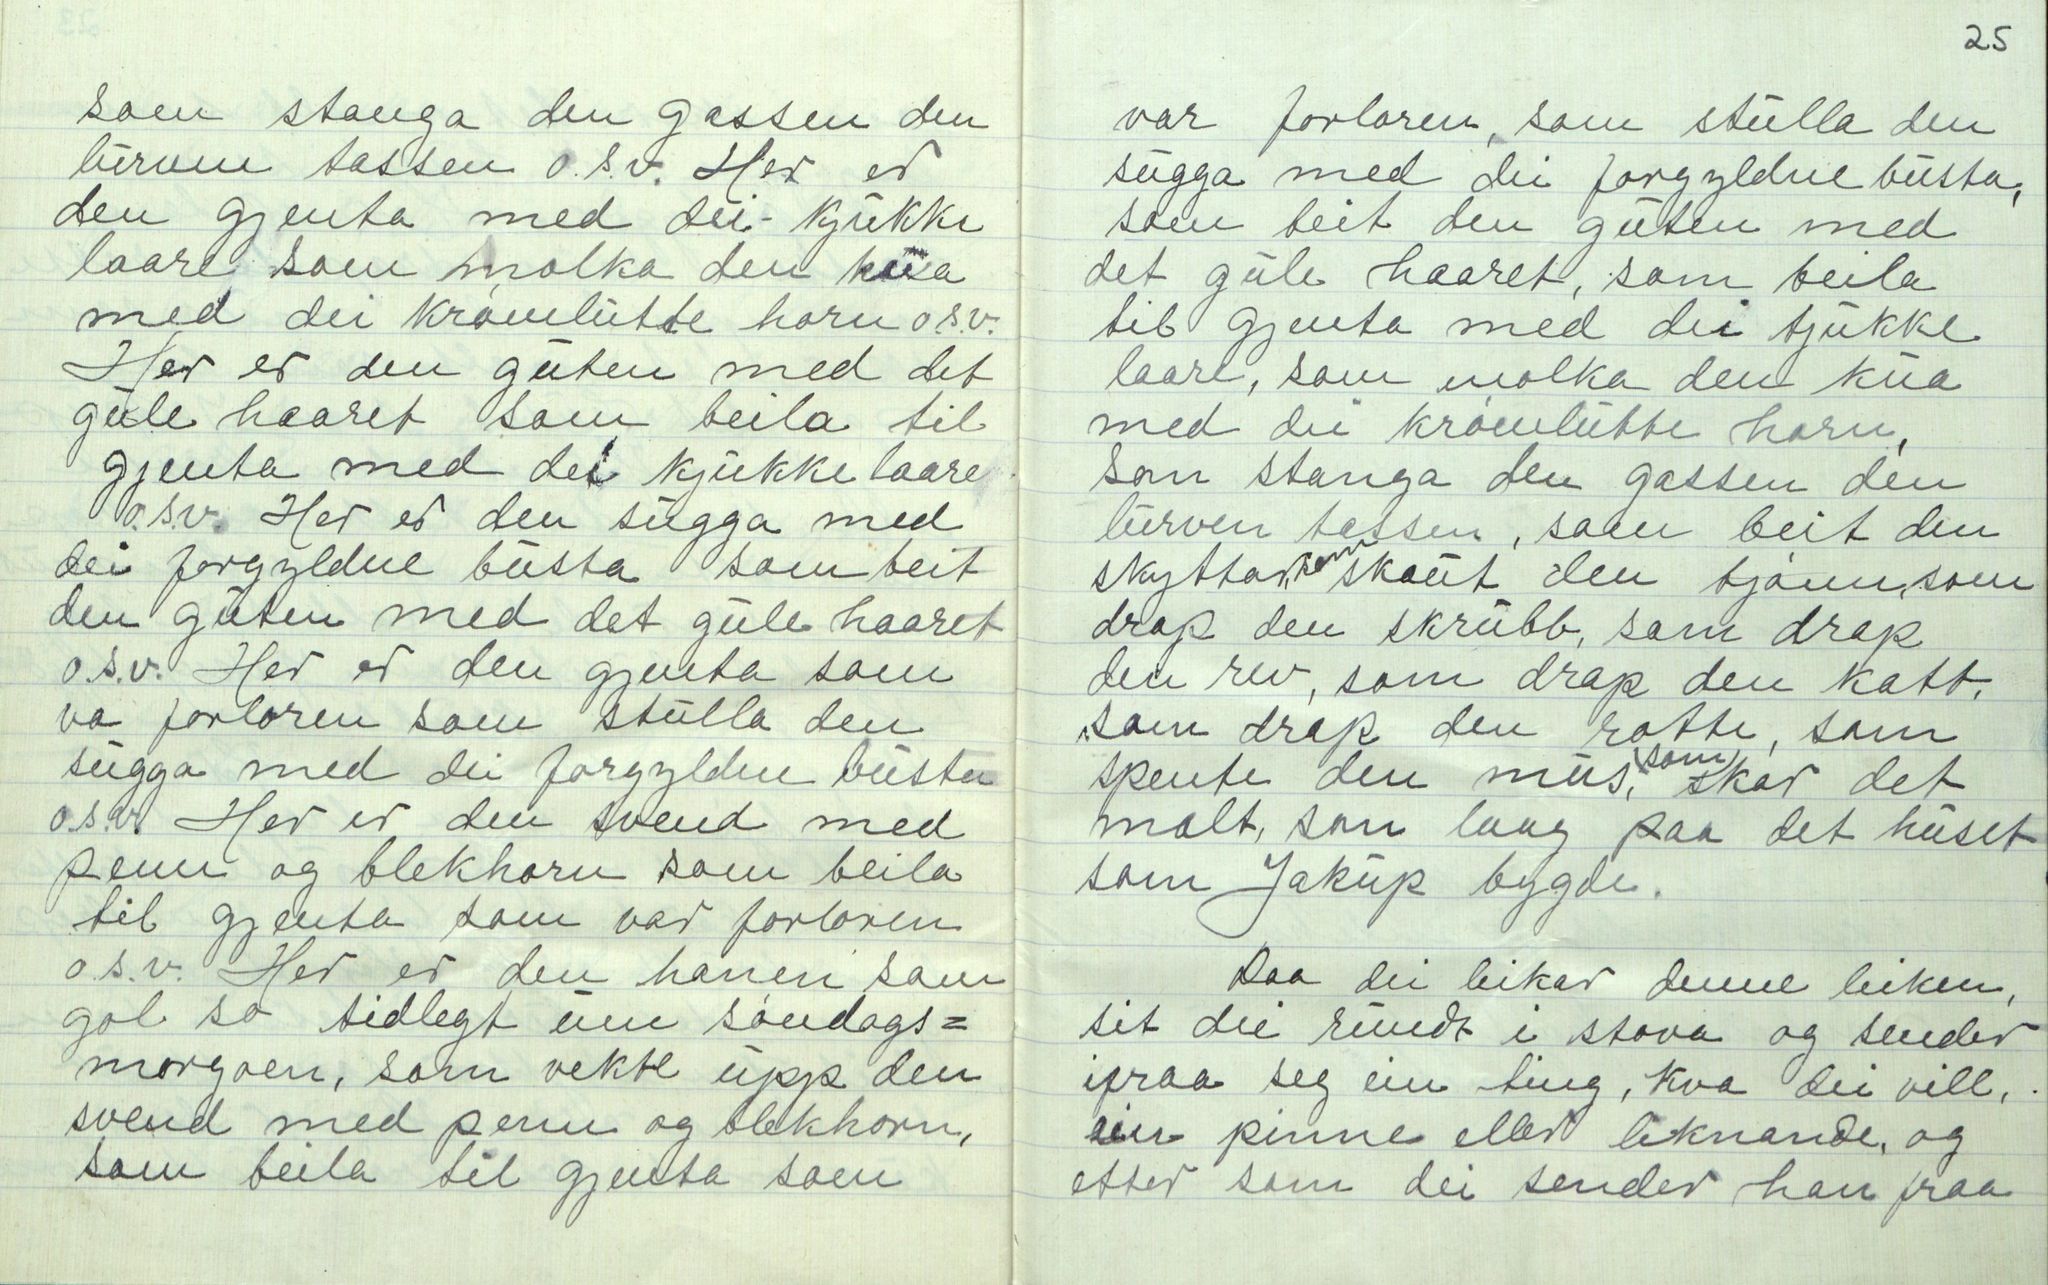 som stanga den gassen den
lurven tassen o.s.v. Her er
den gjenta med dei kjukke
laare som molka den kua
med dei kromlutte horn o.s.v.
Her er den guten med det
gule haaret som beila til
gjenta med dei kjukke laare
o.s.v. Her er den sugga med
dei forgyldne busta som beit
den guten med det gule haaret
o.s.v. Her er den gjenta som
va forloren som stulla den
sugga med dei forgyldne busta
o.s.v. Her er den svend med
penn og blekhorn som beila
til gjenta som var forloren
o.s.v. Her er den hanen som
gol so tidlegt um søndags=
morgoen, som vekte upp den
svend med penn og blekhorn,
som beila til gjenta som
25
var forloren, som stulla den
sugga med dei forgyldne busta,
som beit den guten med
det gule haaret, som beila
til gjenta med dei tjukke
laare, som molka den kua
med dei kromlutte horn,
som stanga den gassen den
lurven tassen, som beit den
skyttar, som skaut den bjønn, som
drap den skrubb, som drap
den rev, som drap den katt,
som drap den rotte, som
spente den mus, som skar det
malt, som laag paa det huset
som Jakup bygde.
Daa dei leikar denne leiken,
sit dei rundt i stova og sender
ifraa seg ein ting, kva dei vill,
ein pinne eller liknande, og
etter som dei sender han fraa